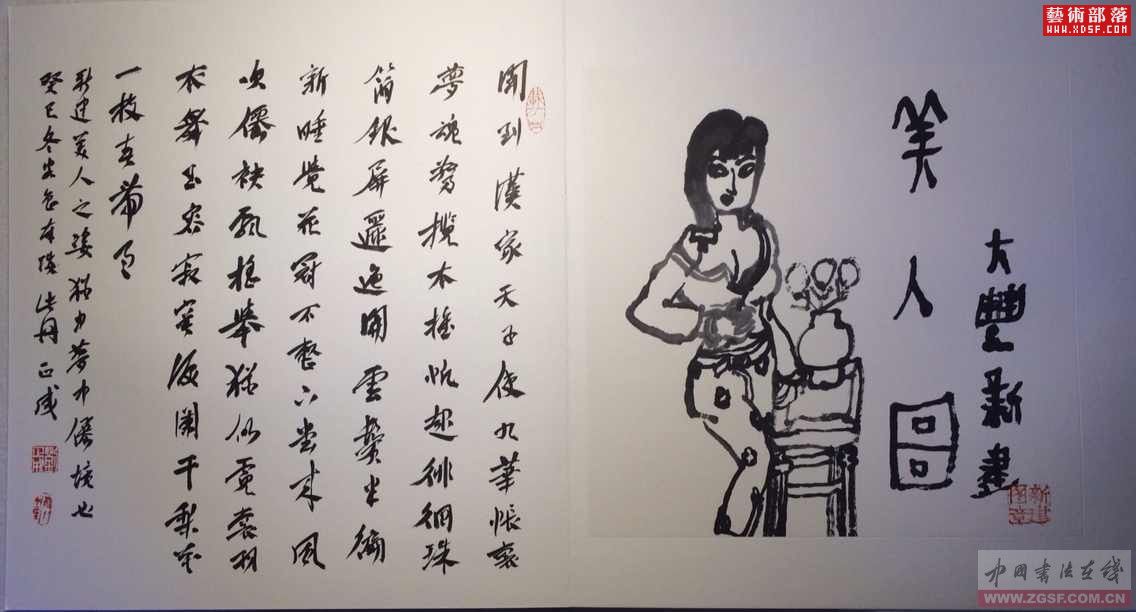 藝術部落
WWW.XDSF.COM
大豐新畫
美人圖
聞到漢家天子使九華帳裏
夢魂驚攬衣推枕起徘徊珠
箔銀屏邐迤開雲鬢半偏
新睡覺花冠不整下堂來風
吹僊袂飄搖舉猶似霓裳羽
衣舞玉容寂寞淚闌干梨花
一枝春帶雨
新建美人之姿猶如夢中僊境也
癸巳冬 正成
中国书法在线
WWW.ZGSF.COM.CN